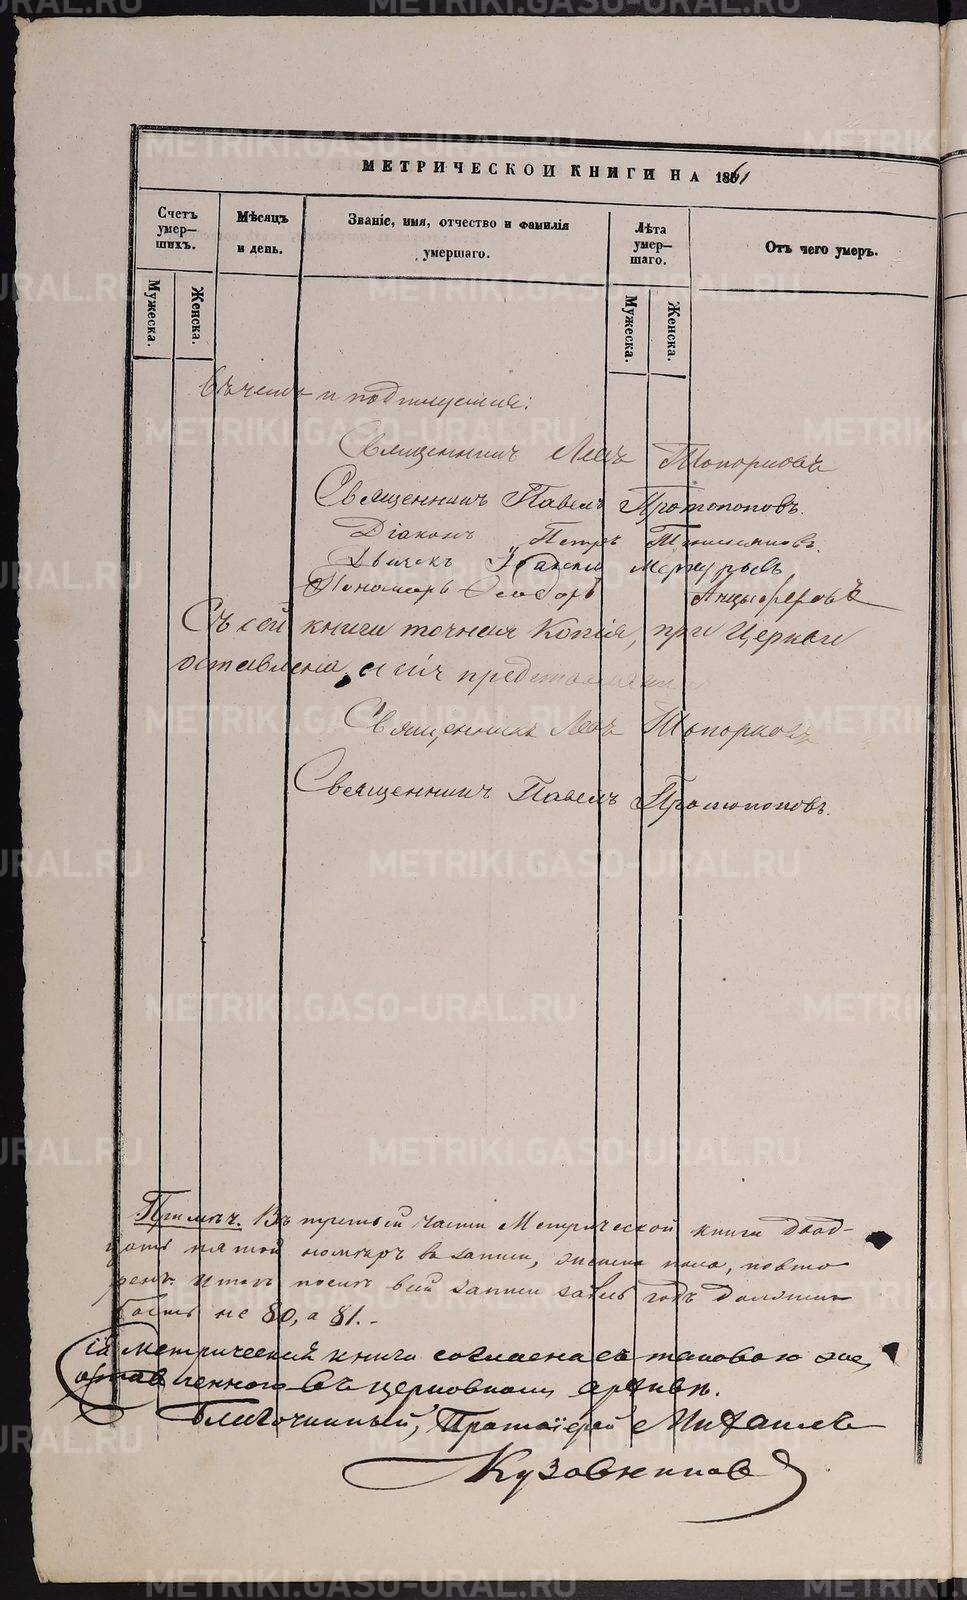 МЕТРИЧЕСКОЙ КНИГИ НА 1861
Счетъ умер—шихъ.
Мѣсяцъ и день.
Званіе, имя, отчество и фамилія умершаго.
Лѣта умер—шаго.
Отъ чего умеръ.
Мужеска.
Женска.
Мужеска.
Женска.
въ чемъ и подпишемся:
Священникъ Левъ Топорковъ
Священникъ Павелъ Протопоповъ.
Діаконъ Петръ
Дьячекъ Меркурьевъ
Пономарь Ѳеодоръ Анцыферовъ
Съ сей книги точная Копія, при Церкви
оставлена, а сія представлена
Священникъ Левъ Топорковъ
Священникъ Павелъ Протопоповъ.
Примѣч. Въ третьей части Метрической книги двад-
цать пятой номеръ въ записи, женска пола, повто
ренъ. Итогъ посему всей записи за весь годъ долженъ
быть не 80, а 81.-
Сія метрическая книга согласна съ таковою же,
оставленною въ церковномъ архивѣ.
Благочинный, Протоіерей Михаилъ
Кузовниковъ
METRIKI.GASO-URAL.RU